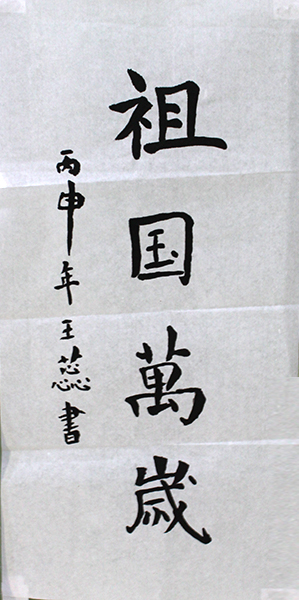 祖国萬歲
丙申年王蕊書